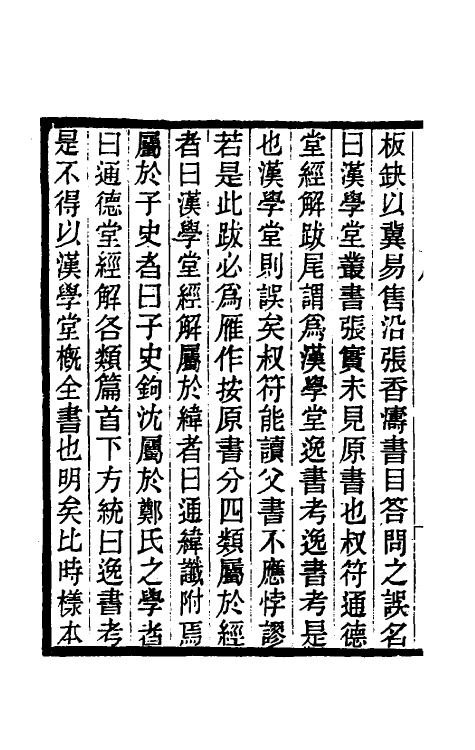 板缺以冀易售沿張香濤書目答問之誤名
曰漢學堂叢書張實未見原書也叔符通德
堂經解跋尾謂為漢學堂逸書考逸書考是
也漢學堂則誤矣叔符能讀父書不應悖謬
若是此跋必爲雁作按原書分四類屬於經
者曰漢學堂經解屬於緯者曰通緯讖附焉
屬於子史者曰子史鉤沈屬於鄭氏之學者
曰通德堂經解各類篇首下方統曰逸書考
是不得以漢學堂概全書也明矣比時樣本